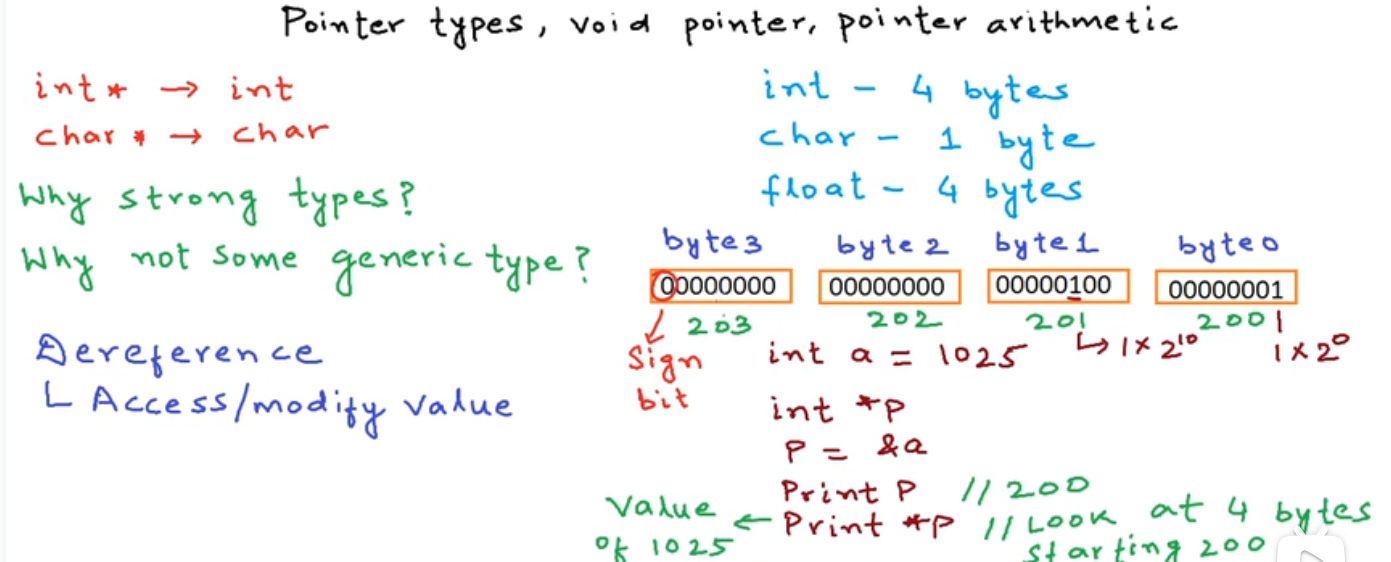 Pointer types, void pointer, pointer arithmetic
int* → int
char* → char
Why strong types?
Why not some generic type?
Dereference
↳ Access/modify value
int - 4 bytes
char - 1 byte
float - 4 bytes
byte3 byte2 byte1 byte0
00000000 00000000 00000100 00000001
203 202 201 200
Sign bit
↳ 1×2¹⁰ 1×2⁰
int a = 1025
int *p
P = &a
Print P // 200
Print *p // Look at 4 bytes
starting 200
← Value
of 1025